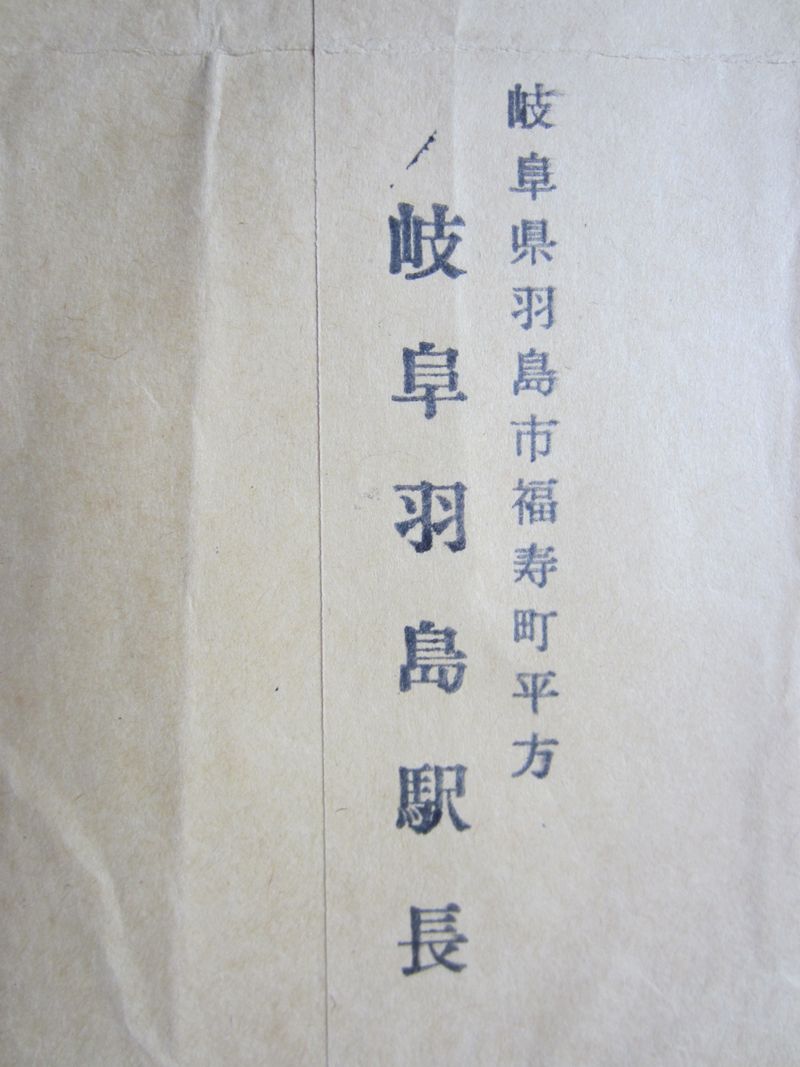 岐阜県羽島市福寿町平方
岐阜羽島駅長